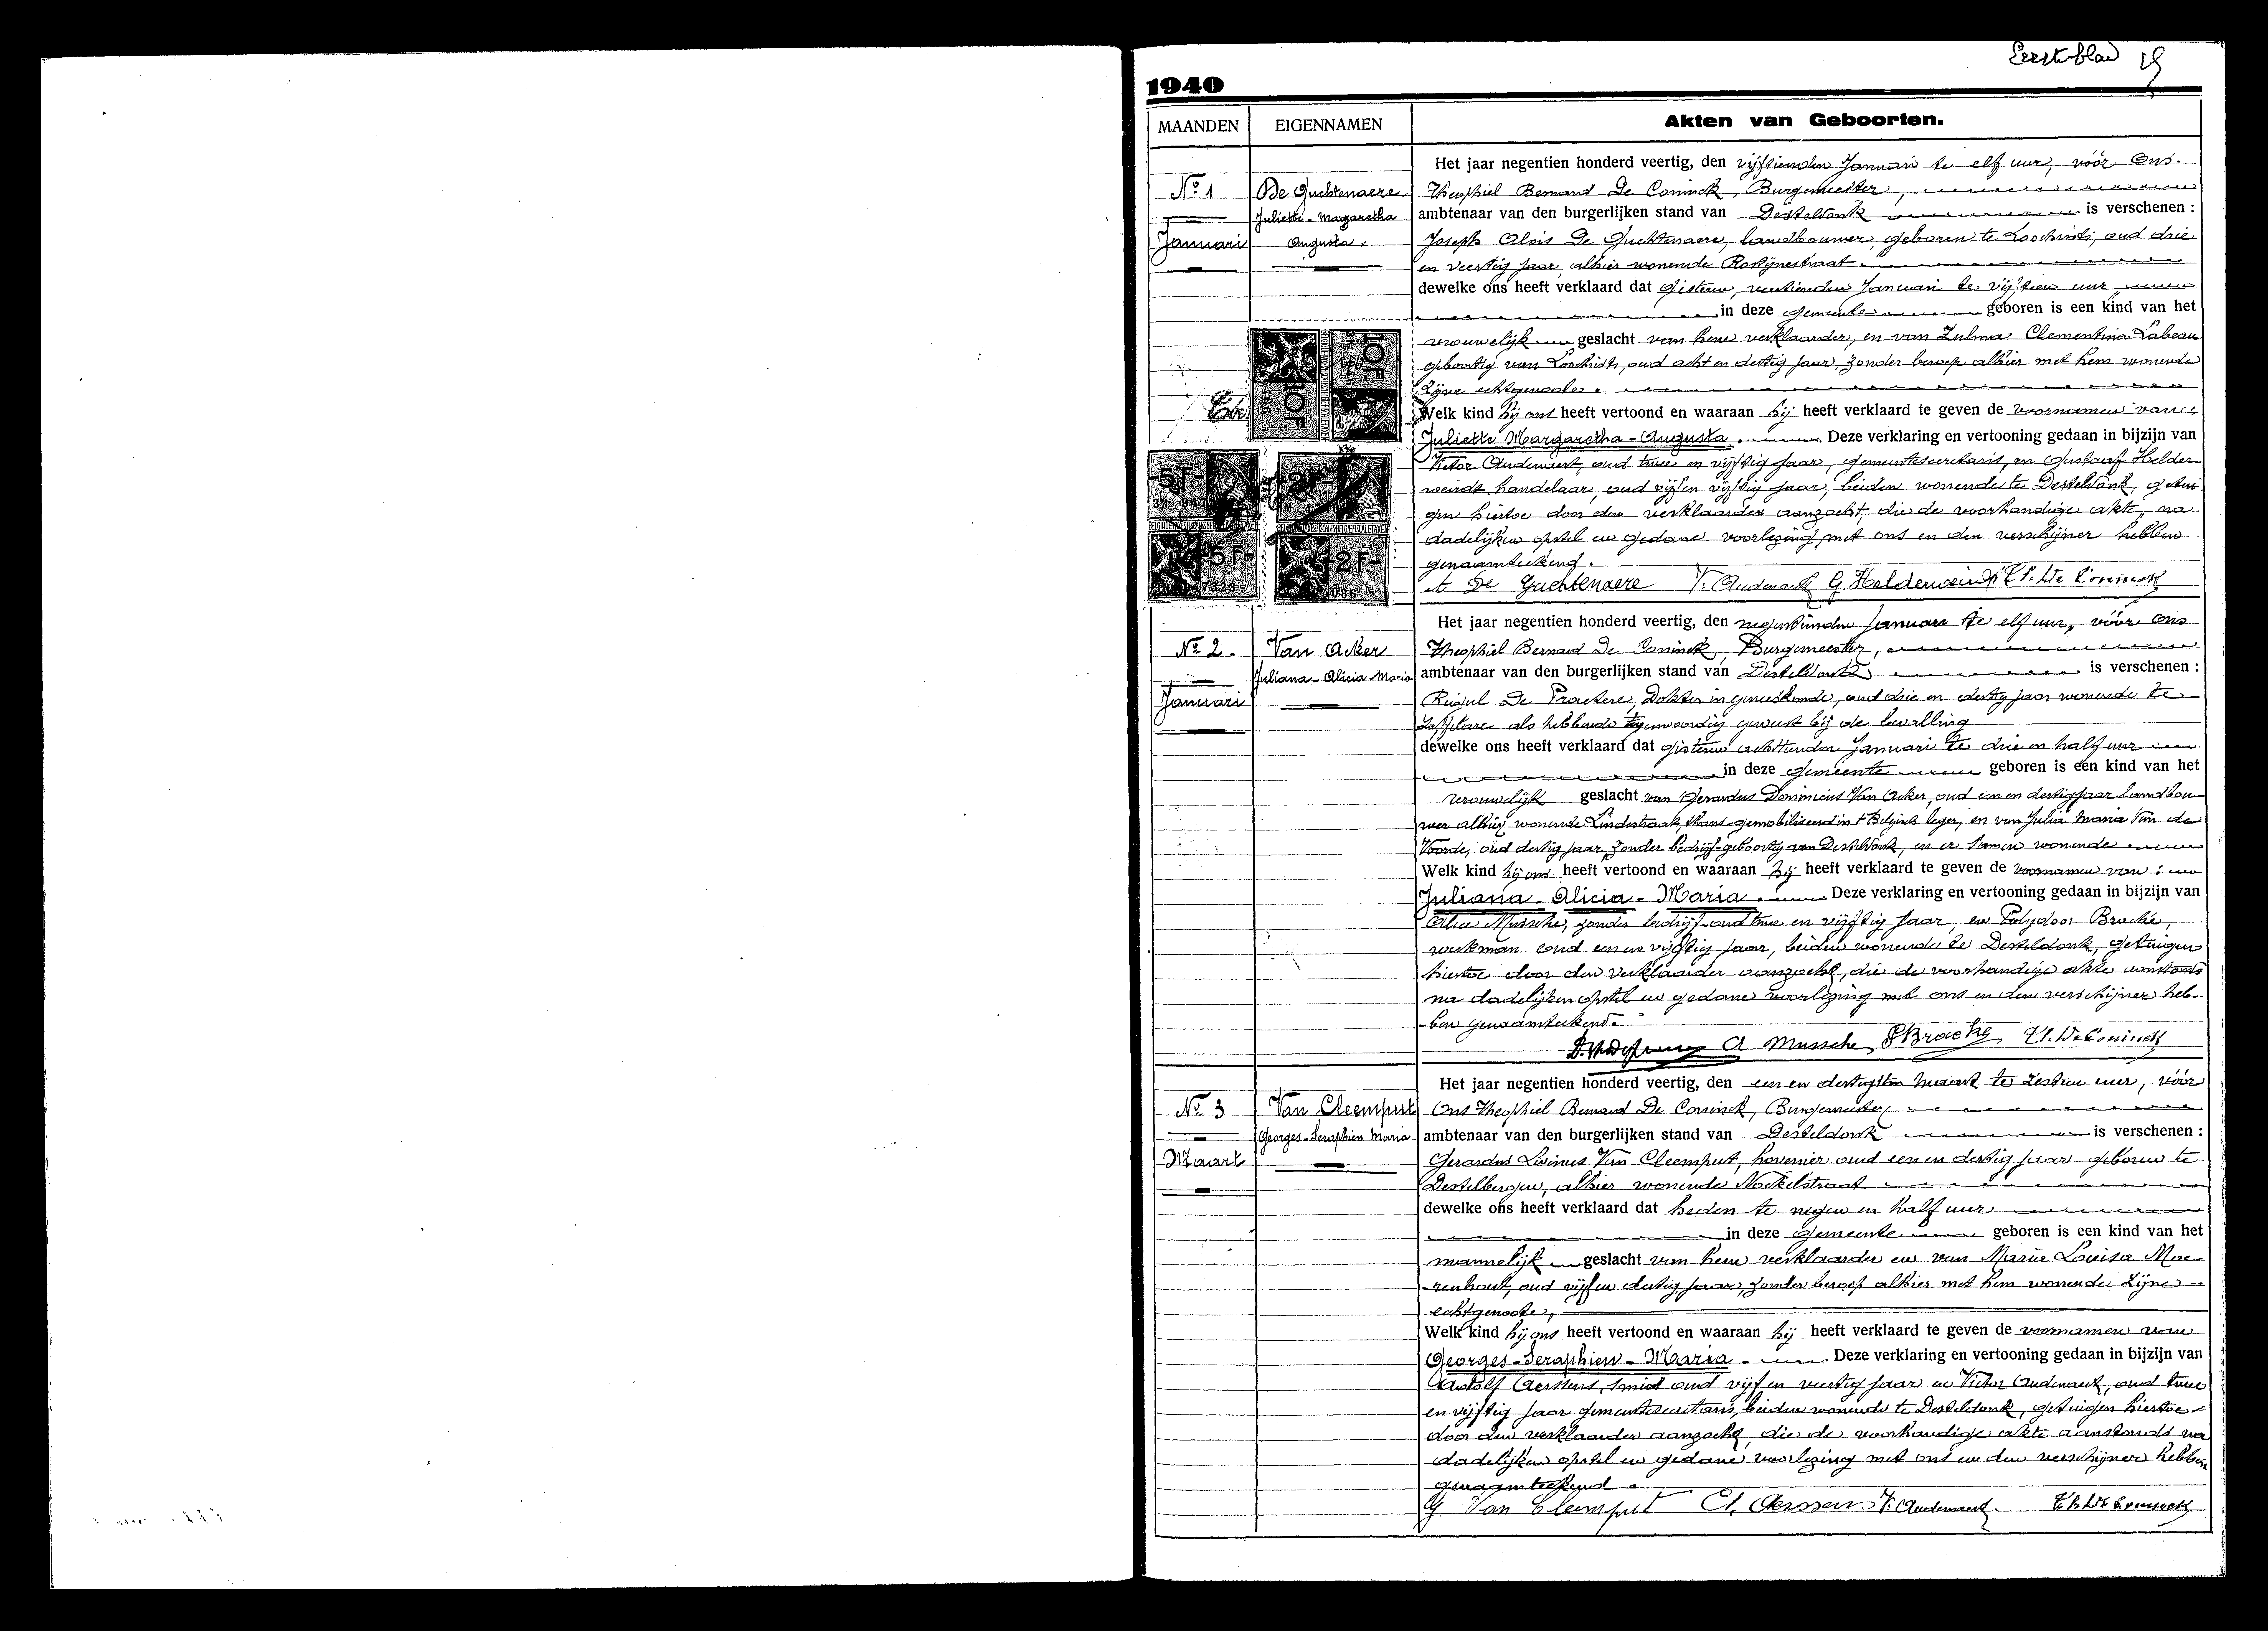 Eerste blad
1940
MAANDEN
EIGENNAMEN
Akten van Geboorten.
Nº 1
Januari
De Guchtenaere
Juliette-Margaretha
Augusta.
Het jaar negentien honderd veertig, den vijftienden Januari te elf uur, vóór Ons.
Theophiel Bernard De Coninck, Burgemeester,
ambtenaar van den burgerlijken stand van Desteldonk is verschenen :
Joseph Alois De Guchtenaere, landbouwer, geboren te Loochristi, oud drie
en veertig jaar, alhier wonende Rostijnestraat
dewelke ons heeft verklaard dat gisteren, veertienden Januari te vijftien uur
in deze gemeente geboren is een kind van het
vrouwelijk geslacht van hem verklaarder, en van Zulma Clementina Labeau
geboortig van Loochristi, oud acht en dertig jaar, zonder beroep alhier met hem wonende
Zijne echtgenoote.
Welk kind hij ons heeft vertoond en waaraan hij heeft verklaard te geven de voornamen van :
Juliette Margaretha-Augusta. Deze verklaring en vertooning gedaan in bijzijn van
Victor Audenaert, oud twee en vijftig jaar, gemeentesecretaris, en Gustaaf Helder-
weirdt, handelaar, oud vijf en vijftig jaar, beiden wonende te Desteldonk, getui
gen hiertoe door den verklaarder aanzocht, die de voorhandige akte, na
dadelijken opstel en gedane voorlezing, met ons en den verschijner hebben
genaamteekend.
De Guchtenaere V. Audenaert G Helderweirdt Th. De Coninck
10F.
10F.
5F
2F
5F
2F
Nº 2.
Januari
Van Acker
Juliana-Alicia-Maria
Het jaar negentien honderd veertig, den negentienden Januari te elf uur, vóór ons
Theophiel Bernard De Coninck, Burgemeester,
ambtenaar van den burgerlijken stand van Desteldonk is verschenen :
De Praetere, Dokter in geneeskunde, oud drie en dertig jaar wonende te
Zaffelare als hebbende tegenwoordig geweest bij de bevalling
dewelke ons heeft verklaard dat gisteren achttienden Januari te drie en half uur
in deze gemeente geboren is een kind van het
vrouwelijk geslacht van Gerardus Dominicus Van Acker, oud een en dertig jaar landbou-
wer alhier wonende Lindestraat, thans gemobiliseerd in 't Belgisch leger, en van Julia Maria Van de
Voorde, oud dertig jaar, zonder bedrijf geboortig van Desteldonk, en er samen wonende
Welk kind hij ons heeft vertoond en waaraan hij heeft verklaard te geven de voornamen van :
Juliana-Alicia-Maria. Deze verklaring en vertooning gedaan in bijzijn van
Alice Mussche, zonder bedrijf oud twee en vijftig jaar, en Polydoor Bracke,
werkman oud een en vijftig jaar, beiden wonende te Desteldonk, getuigen
hiertoe door den verklaarder aanzocht, die de voorhandige akte aanstonds
na dadelijken opstel en gedane voorlezing met ons en den verschijner heb-
ben genaamteekend.
A Mussche P Bracke Th. De Coninck
Nº 3
Maart
Van Cleemput
Georges-Seraphien Maria
Het jaar negentien honderd veertig, den een en dertigsten Maart te zestien uur, vóór
Ons Theophiel Bernard De Coninck, Burgemeester
ambtenaar van den burgerlijken stand van Desteldonk is verschenen :
Gerardus Livinus Van Cleemput, hovenier oud een en dertig jaar geboren te
Destelbergen, alhier wonende Mockelstraat
dewelke ons heeft verklaard dat heden te negen en half uur
in deze gemeente geboren is een kind van het
mannelijk geslacht van hem verklaarder en van Marie Louisa Moe-
renhout, oud vijf en dertig jaar, zonder beroep alhier met hem wonende Zijne
echtgenoote,
Welk kind hij ons heeft vertoond en waaraan hij heeft verklaard te geven de voornamen van
Georges-Seraphien-Maria. Deze verklaring en vertooning gedaan in bijzijn van
Adolf Aerssens, smid oud vijf en veertig jaar en Victor Audenaert, oud twee
en vijftig jaar gemeentesecretaris, beiden wonende te Desteldonk, getuigen hiertoe
door den verklaarder aanzocht, die de voorhandige akte aanstonds na
dadelijken opstel en gedane voorlezing met ons en den verschijner hebben
genaamteekend.
G. Van Cleemput A. Aerssens V. Audenaert. Th. De Coninck